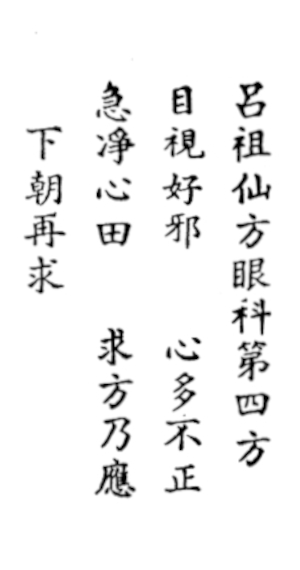 呂祖仙方眼科第四方
目視好邪　心多不正
急凈心田　求方乃應
下朝再求